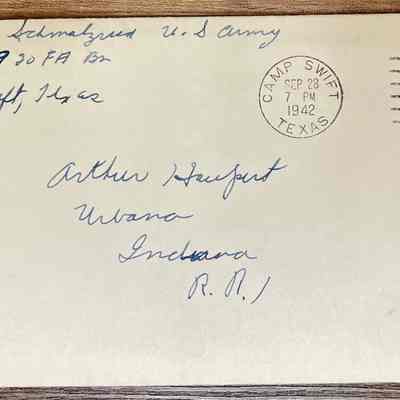 Schmalzried U. S Army
920 FA Bn
ft, Texas
CAMP SWIFT
SEP 28
7 PM
1942
TEXAS
Arthur Haupert
Urbana
Indiana
R. R. 1